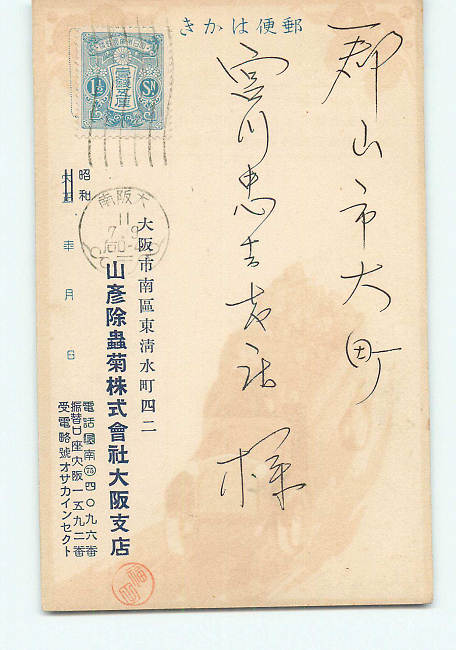 郵便はかき
郡山市大町
宮川忠吉商店
様
大日本帝國郵便
壹錢五厘
1½ Sn
大阪南
11
7.9
昭和 年 月 日
大阪市南區東淸水町四二
山彥除蟲菊株式會社大阪支店
電話園南㊄四〇九六番
振替口座大阪一五九二番
受電略號オサカインセクト